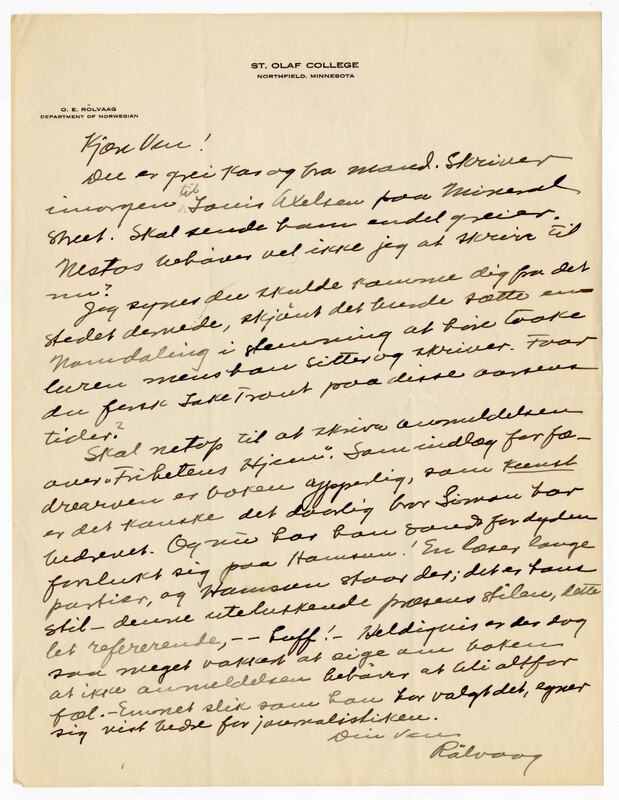 ST. OLAF COLLEGE
NORTHFIELD, MINNESOTA
O. E. RÖLVAAG
DEPARTMENT OF NORWEGIAN
Kjære Ven!
Du er grei kar og bra mand. Skriver
imorgen til Louis Axelsen paa Mineral
Street. Skal sende ham endel greier.
Nestos behöver vel ikke jeg at skrive til
nu?
Jeg synes du skulde komme dig fra det
stedet dernede, skjönt det burde sætte en
Namdaling i stemning at höre taake
luren mens han sitter og skriver. Faar
du fersk Lake Trout paa disse aarsens
tider?
Skal netop til at skrive anmeldelsen
over "Frihetens Hjem". Som indlæg for fæ-
drearven er boken ypperlig, som kunst
er det kanske det daarlig bror Simon har
bedrevet. Og nu har han ondt for dyden
forslukt sig paa Hamsun! En læser lange
partier, og Hamsun staar der; det er hans
stil – denne utelukkende præsens stilen, dette
let refererende, –– Luff! – Heldigvis er der dog
saa meget vakkert at sige om boken
at ikke anmeldelsen behöver at bli altfor
fæl. – Emnet slik som han har valgt det, egner
sig vist bedre for journalistiken.
Din Ven
Rölvaag